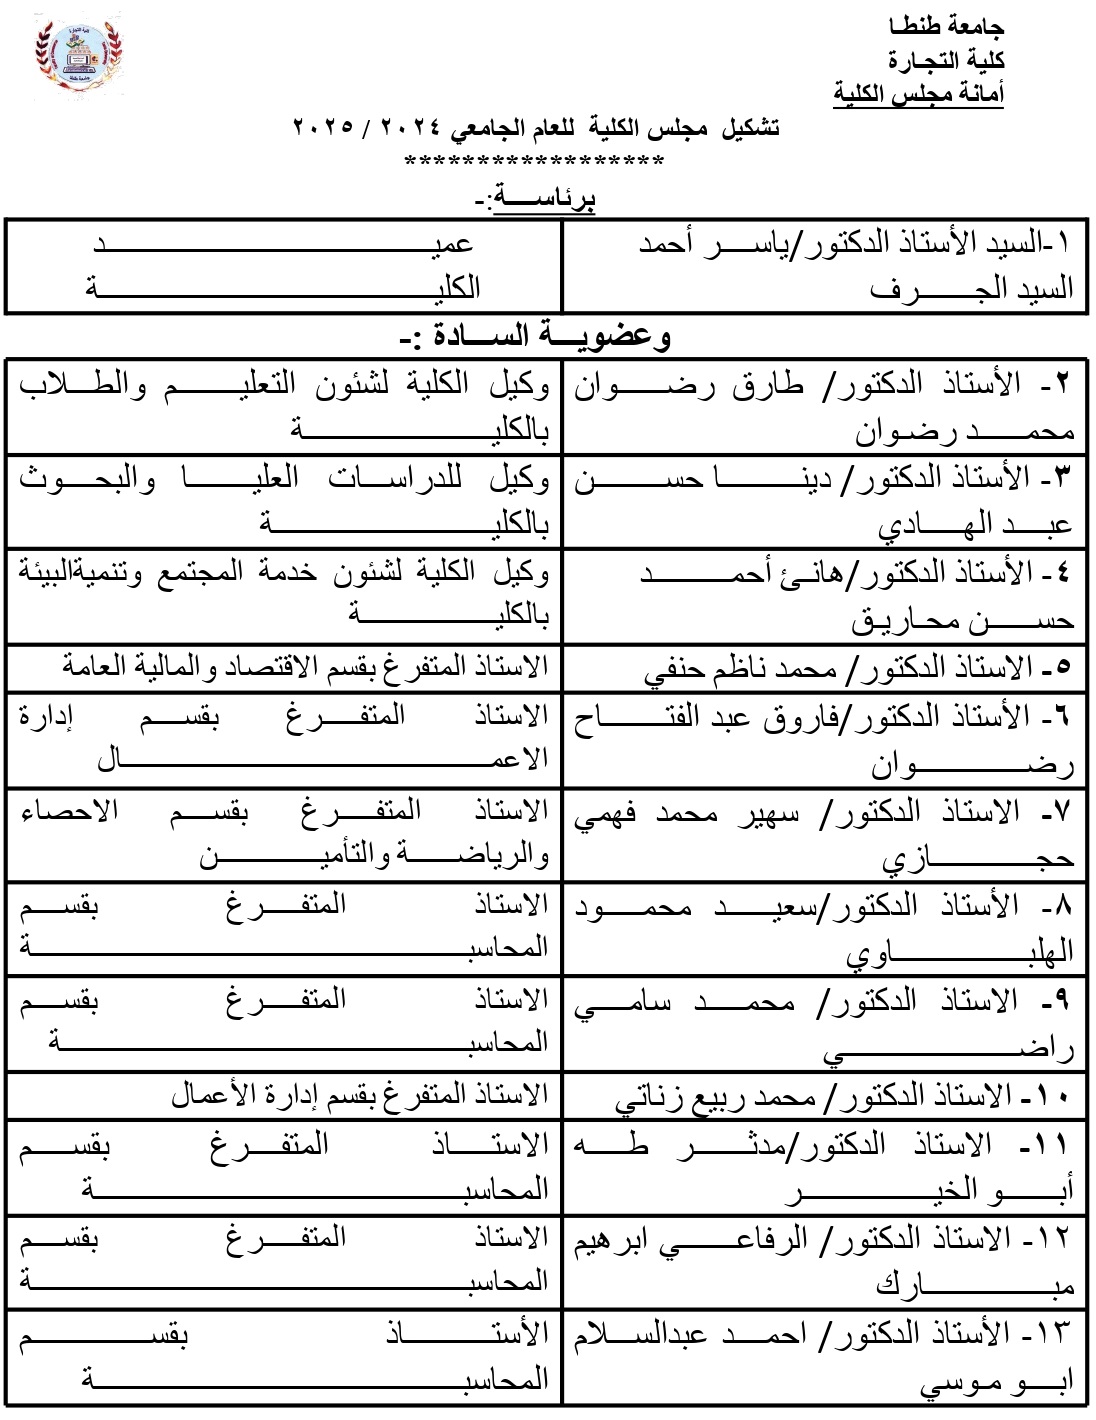 جامعة طنطا
كلية التجارة
أمانة مجلس الكلية
تشكيل مجلس الكلية للعام الجامعي ٢٠٢٤ / ٢٠٢٥
******************
برئاسة:-
١-السيد الأستاذ الدكتور/ياسر أحمد
السيد الجرف
عميد
الكلية
وعضوية السادة :-
٢- الأستاذ الدكتور/ طارق رضوان
محمد رضوان
وكيل الكلية لشئون التعليم والطلاب
بالكلية
٣- الأستاذ الدكتور/ دينا حسن
عبد الهادي
وكيل للدراسات العليا والبحوث
بالكلية
٤- الأستاذ الدكتور/هانئ أحمد
حسن محاريق
وكيل الكلية لشئون خدمة المجتمع وتنميةالبيئة
بالكلية
٥- الاستاذ الدكتور/ محمد ناظم حنفي
الاستاذ المتفرغ بقسم الاقتصاد والمالية العامة
٦- الأستاذ الدكتور/فاروق عبد الفتاح
رضوان
الاستاذ المتفرغ بقسم إدارة
الاعمال
٧- الاستاذ الدكتور/ سهير محمد فهمي
حجازي
الاستاذ المتفرغ بقسم الاحصاء
والرياضة والتأمين
٨- الأستاذ الدكتور/سعيد محمود
الهلباوي
الاستاذ المتفرغ بقسم
المحاسبة
٩- الاستاذ الدكتور/ محمد سامي
راضي
الاستاذ المتفرغ بقسم
المحاسبة
١٠- الاستاذ الدكتور/ محمد ربيع زناتي
الاستاذ المتفرغ بقسم إدارة الأعمال
١١- الاستاذ الدكتور/مدثر طه
أبو الخير
الاستاذ المتفرغ بقسم
المحاسبة
١٢- الاستاذ الدكتور/ الرفاعي ابرهيم
مبارك
الاستاذ المتفرغ بقسم
المحاسبة
١٣- الأستاذ الدكتور/ احمد عبدالسلام
ابو موسي
الأستاذ بقسم
المحاسبة